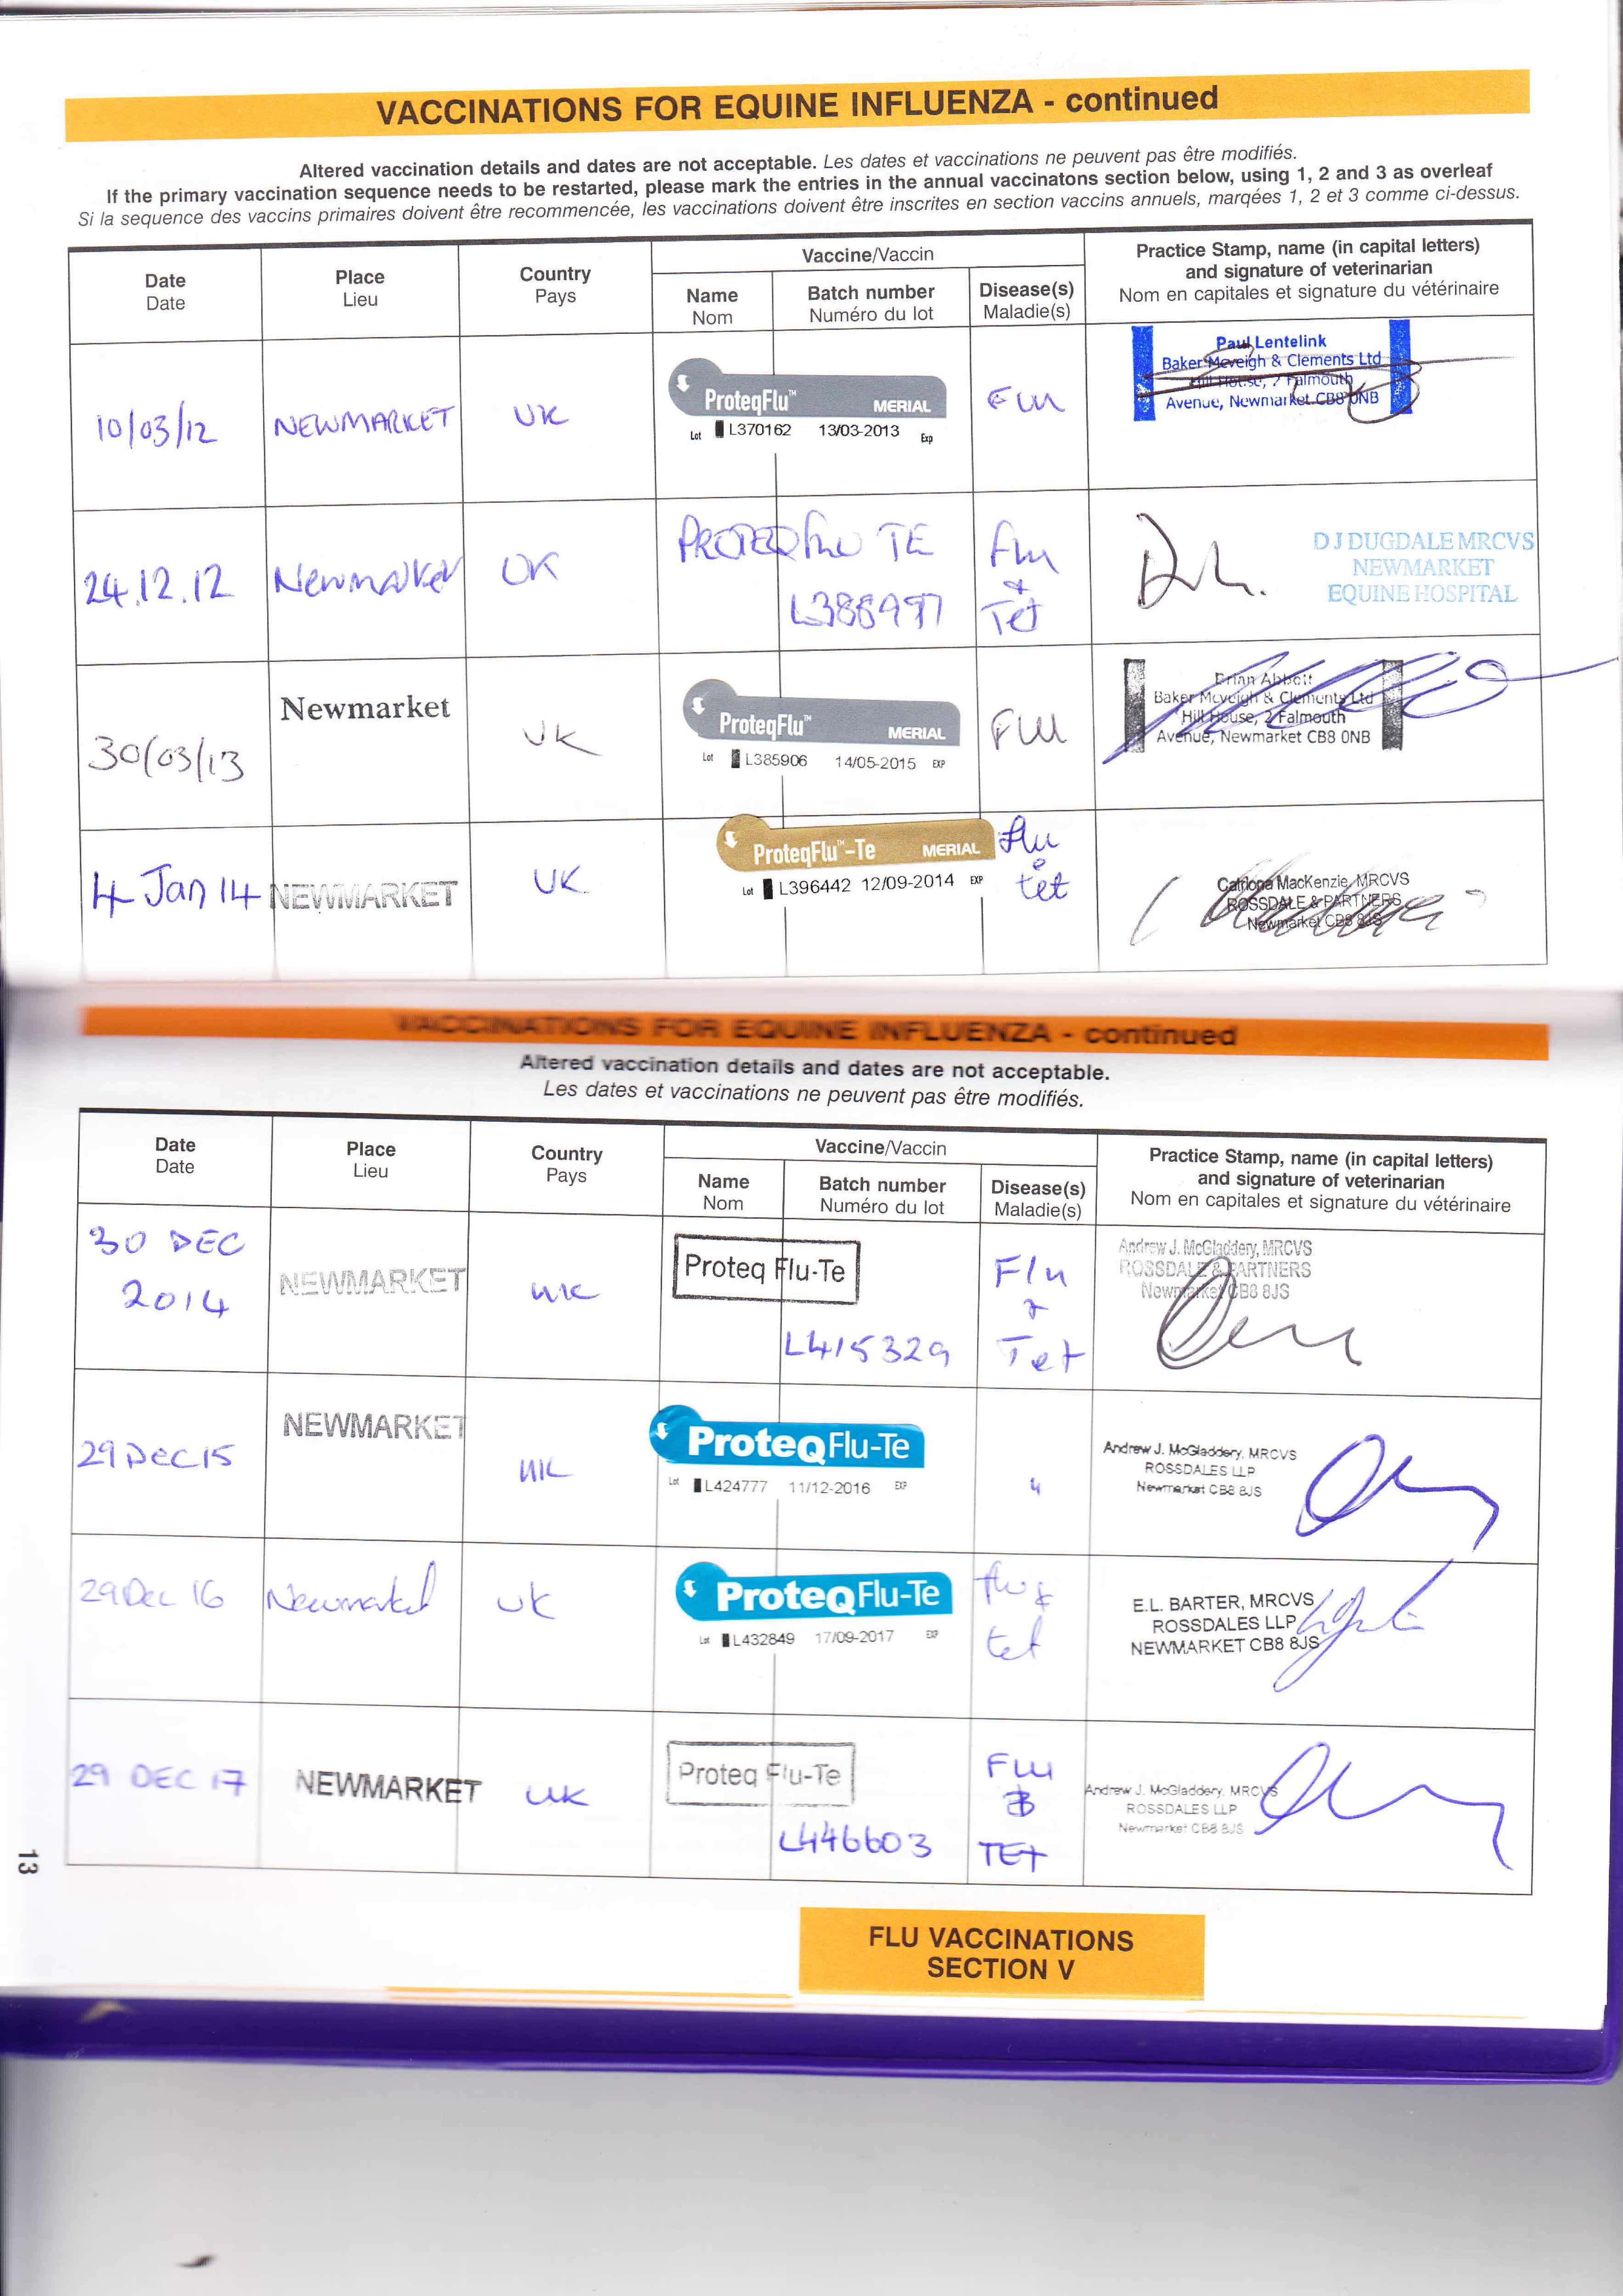 VACCINATIONS FOR EQUINE INFLUENZA - continued
Altered vaccination details and dates are not acceptable. Les dates et vaccinations ne peuvent pas être modifiés.
If the primary vaccination sequence needs to be restarted, please mark the entries in the annual vaccinatons section below, using 1, 2 and 3 as overleaf
Si la sequence des vaccins primaires doivent être recommencée, les vaccinations doivent être inscrites en section vaccins annuels, marqées 1, 2 et 3 comme ci-dessus.
Date
Date
Place
Lieu
Country
Pays
Vaccine/Vaccin
Name
Nom
Batch number
Numéro du lot
Disease(s)
Maladie(s)
Practice Stamp, name (in capital letters)
and signature of veterinarian
Nom en capitales et signature du vétérinaire
10/03/12
NEWMARKET
UK
ProteqFlu™ MERIAL
Lot L370162 13/03-2013 Exp
Flu
Paul Lentelink
Baker Mcveigh & Clements Ltd
Hill House, 2 Falmouth
Avenue, Newmarket CB8 0NB
24.12.12
Newmarket
UK
PROTEQ Flu TE
L386997
Flu
+
Tet
D J DUGDALE MRCVS
NEWMARKET
EQUINE HOSPITAL
30/03/13
Newmarket
UK
ProteqFlu™ MERIAL
Lot L385906 14/05-2015 EXP
FLU
Brian Abbott
Baker Mcveigh & Clements Ltd
Hill House, 2 Falmouth
Avenue, Newmarket CB8 0NB
4 Jan 14
NEWMARKET
UK
ProteqFlu™-Te MERIAL
Lot L396442 12/09-2014 EXP
flu
&
tet
Catriona MacKenzie, MRCVS
ROSSDALE & PARTNERS
Newmarket CB8 8JS
VACCINATIONS FOR EQUINE INFLUENZA - continued
Altered vaccination details and dates are not acceptable.
Les dates et vaccinations ne peuvent pas être modifiés.
Date
Date
Place
Lieu
Country
Pays
Vaccine/Vaccin
Name
Nom
Batch number
Numéro du lot
Disease(s)
Maladie(s)
Practice Stamp, name (in capital letters)
and signature of veterinarian
Nom en capitales et signature du vétérinaire
30 DEC
2014
NEWMARKET
UK
Proteq Flu-Te
L415329
Flu
&
Tet
Andrew J. McGladdery, MRCVS
ROSSDALE & PARTNERS
Newmarket CB8 8JS
29 Dec 15
NEWMARKET
UK
ProteqFlu-Te
Lot L424777 11/12-2016 EXP
"
Andrew J. McGladdery, MRCVS
ROSSDALES LLP
Newmarket CB8 8JS
29 Dec 16
Newmarket
UK
ProteqFlu-Te
Lot L432849 17/09-2017 EXP
flu &
tet
E.L. BARTER, MRCVS
ROSSDALES LLP
NEWMARKET CB8 8JS
29 DEC 17
NEWMARKET
UK
Proteq Flu-Te
L446603
FLU
&
TET
Andrew J. McGladdery, MRCVS
ROSSDALES LLP
Newmarket CB8 8JS
13
FLU VACCINATIONS
SECTION V